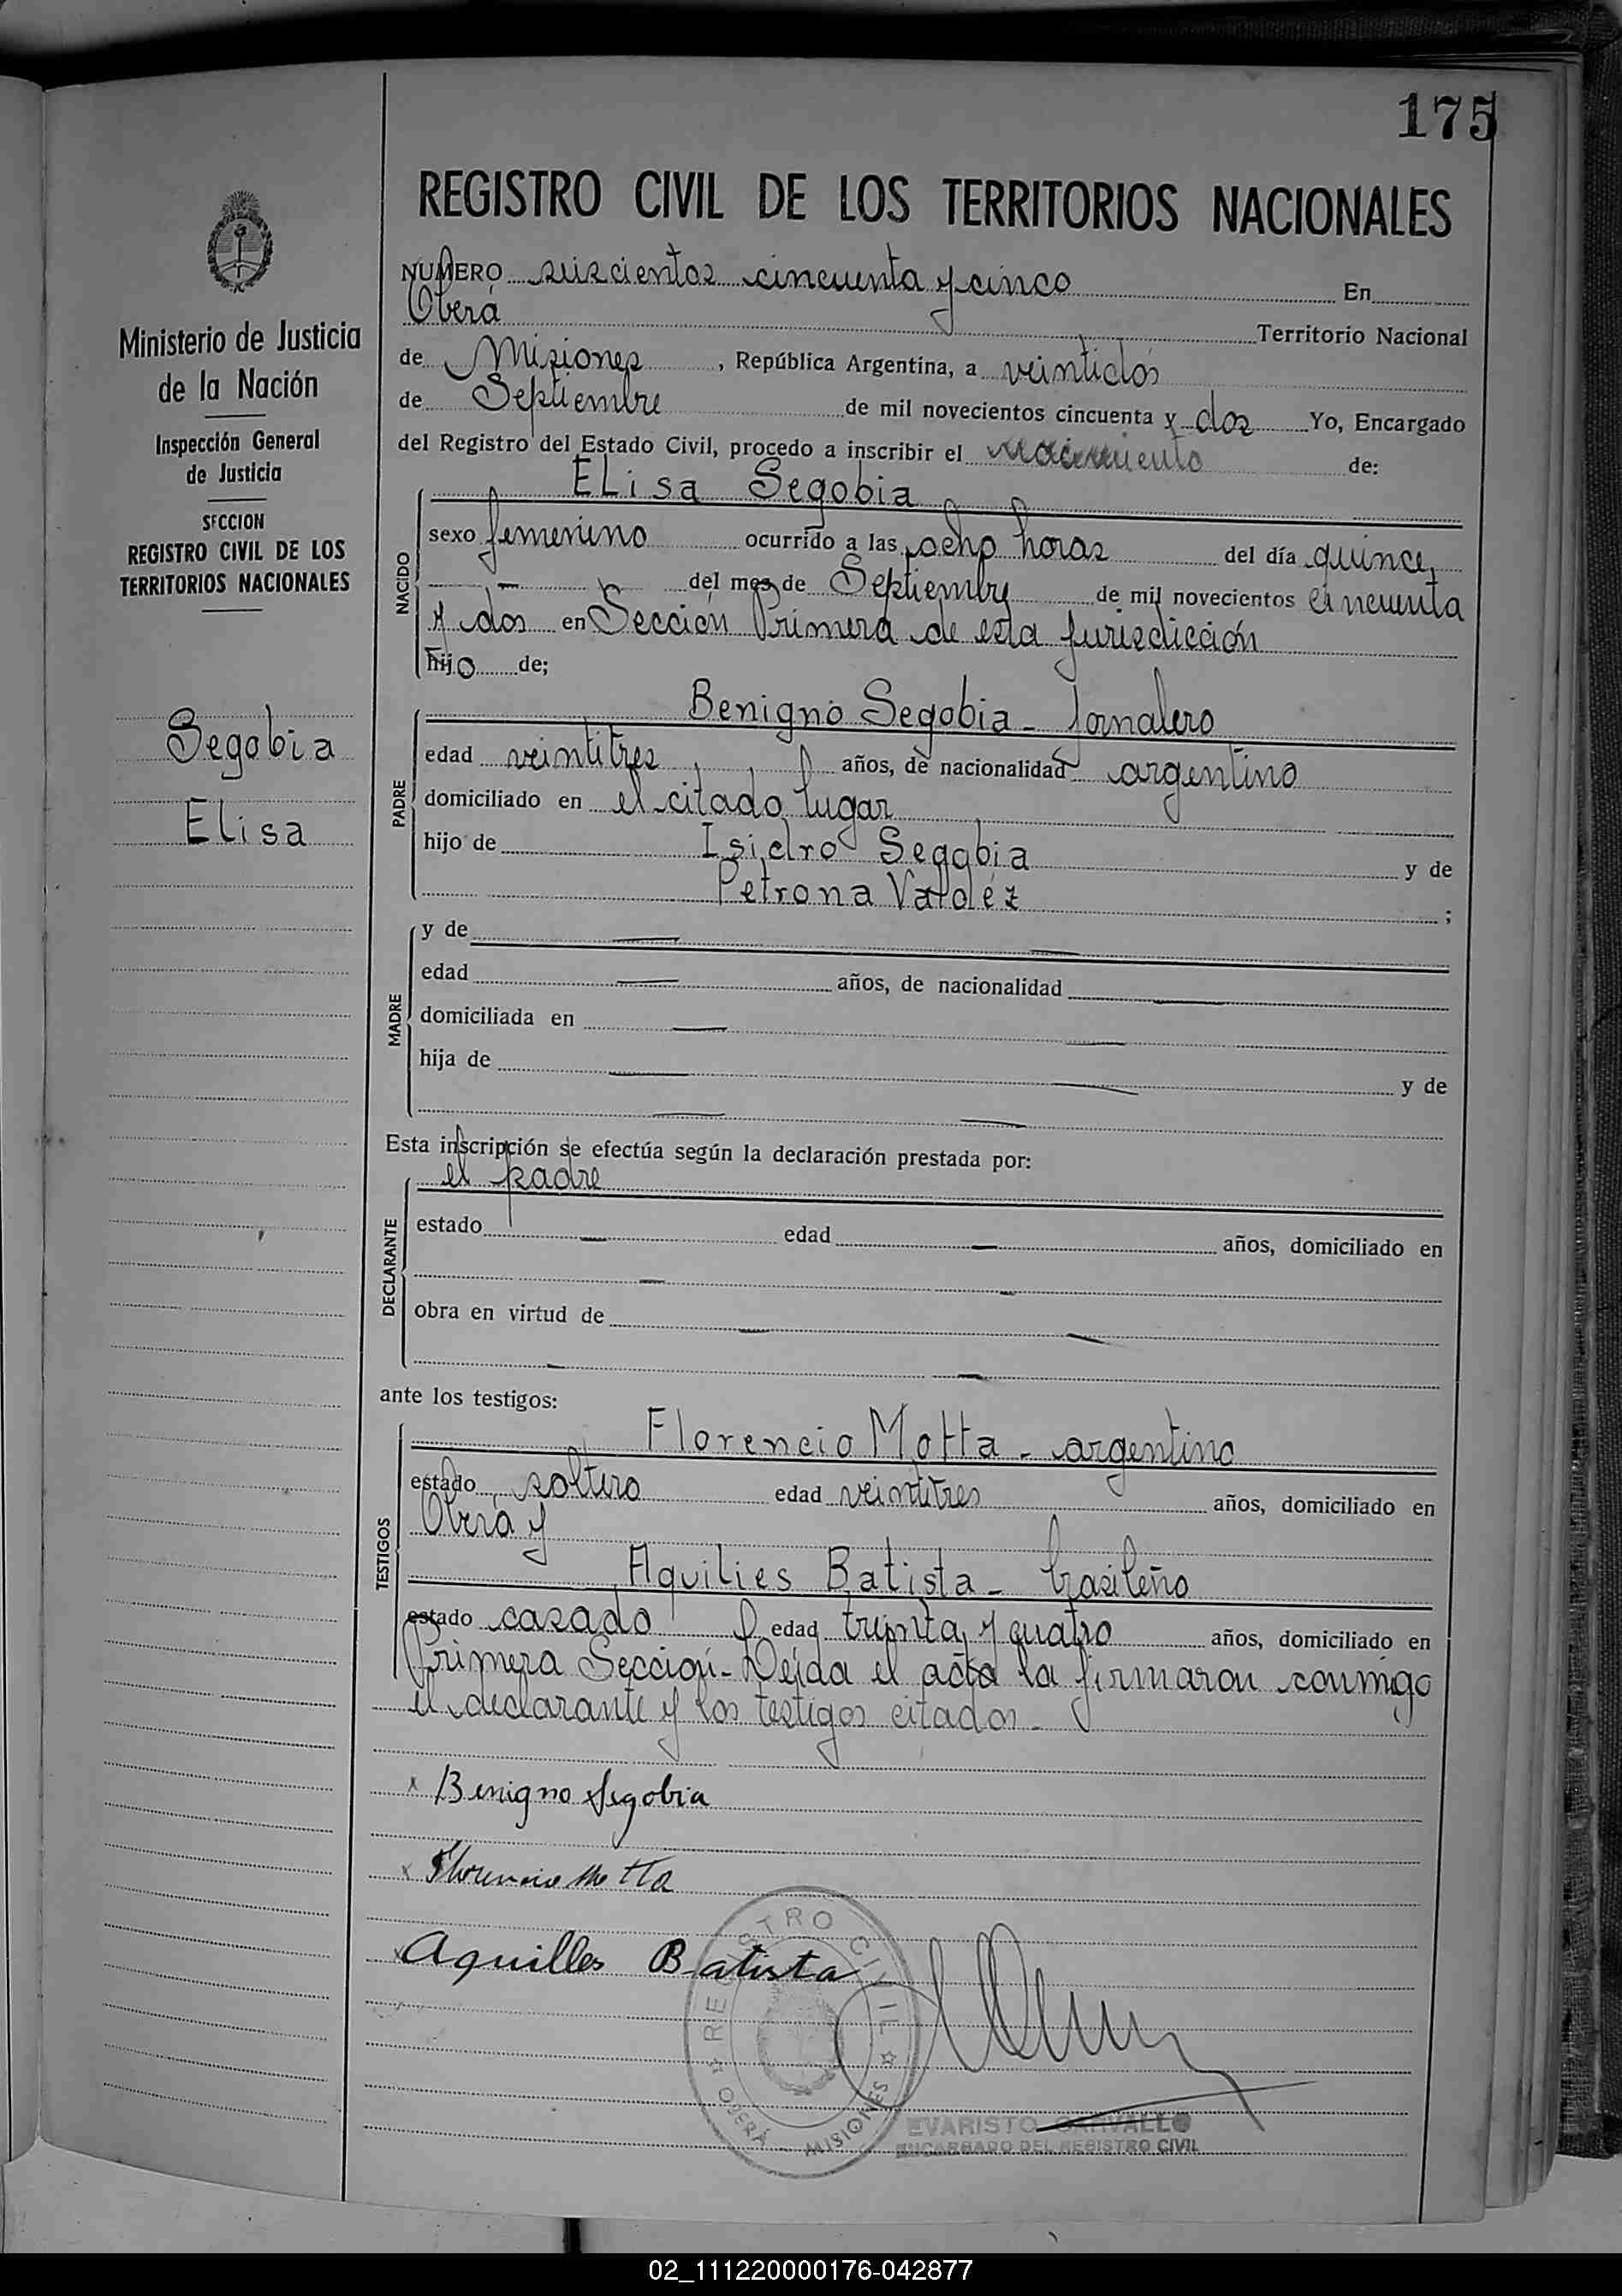 175
REGISTRO CIVIL DE LOS TERRITORIOS NACIONALES
Ministerio de Justicia
de la Nación
Inspección General
de Justicia
SECCION
REGISTRO CIVIL DE LOS
TERRITORIOS NACIONALES
Segobia
Elisa
NUMERO seiscientos cincuenta y cinco En
Oberá Territorio Nacional
de Misiones, República Argentina, a veintidós
de Septiembre de mil novecientos cincuenta y dos Yo, Encargado
del Registro del Estado Civil, procedo a inscribir el nacimiento de:
Elisa Segobia
NACIDO
sexo femenino ocurrido a las ocho horas del día quince
— del mes de Septiembre de mil novecientos cincuenta
y dos en Sección Primera de esta jurisdicción
hijo de;
Benigno Segobia - Jornalero
PADRE
edad veintitres años, de nacionalidad argentino
domiciliado en el citado lugar
hijo de Isidro Segobia y de
Petrona Valdéz ;
MADRE
y de — —
edad — años, de nacionalidad —
domiciliada en — —
hija de — — y de
— —
Esta inscripción se efectúa según la declaración prestada por:
el padre
DECLARANTE
estado — edad — años, domiciliado en
— —
obra en virtud de — —
— —
ante los testigos:
Florencio Motta - argentino
TESTIGOS
estado soltero edad veintitres años, domiciliado en
Oberá y
Aquilies Batista - brasileño
estado casado edad treinta y cuatro años, domiciliado en
Primera Sección - Leída el acta la firmaron conmigo
el declarante y los testigos citados -
x Benigno Segobia
x Florencio Motta
x Aquilles Batista
REGISTRO CIVIL
OBERÁ - MISIONES
EVARISTO CARVALLO
ENCARGADO DEL REGISTRO CIVIL
02_111220000176-042877